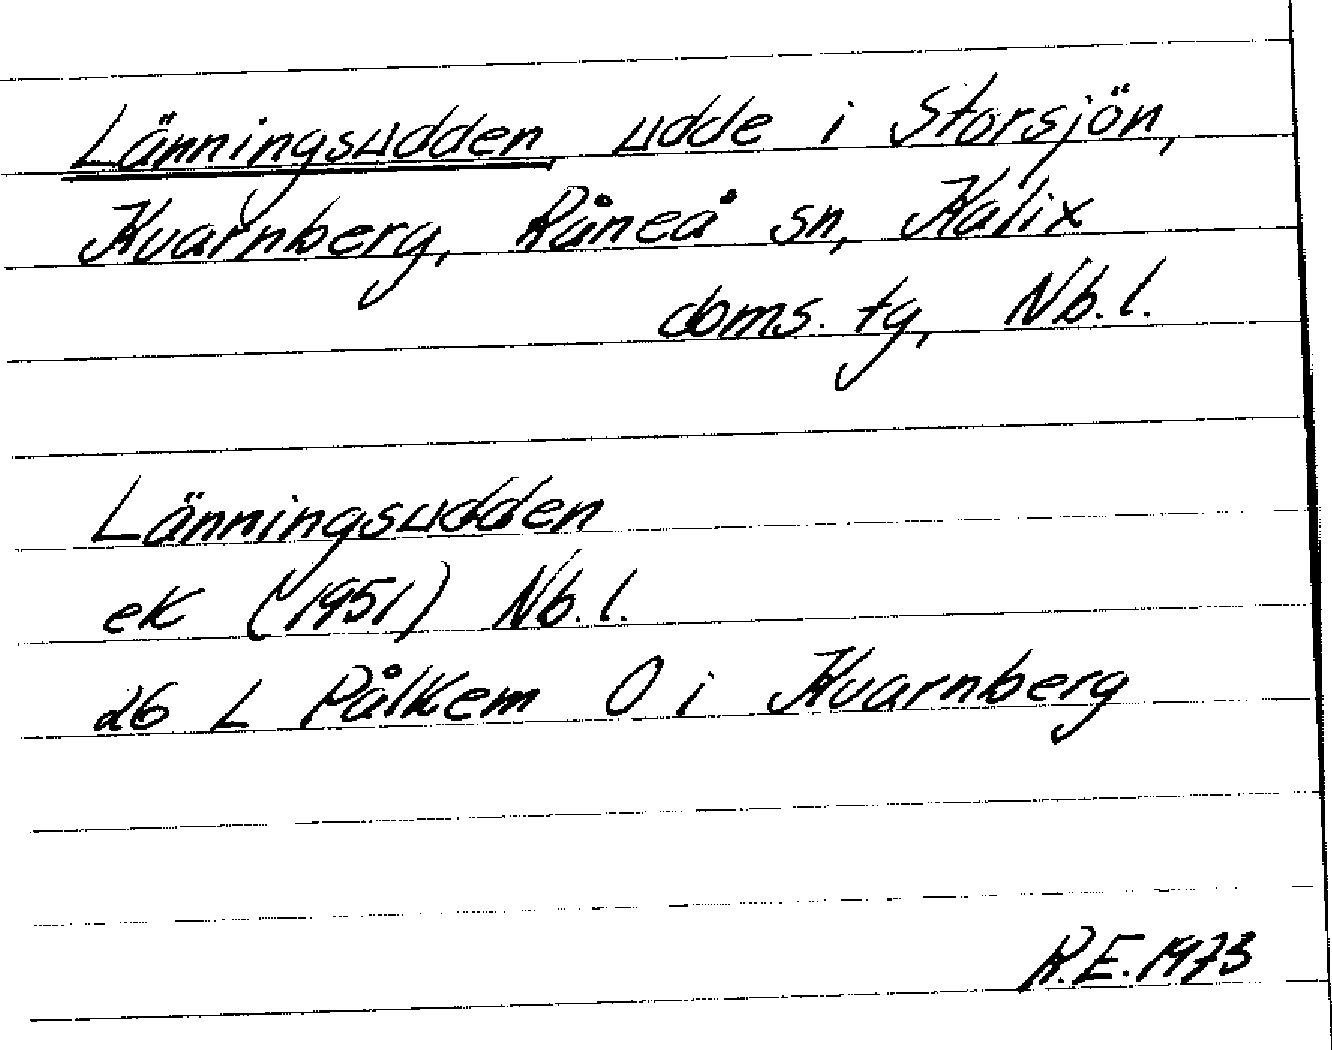 Länningsudden, udde i Storsjön,
Kvarnberg, Råneå sn, Kalix
doms. tg, Nb. l.
Länningsudden
ek (1951) Nb. l.
26 L Pålkem O i Kvarnberg
R.E. 1973